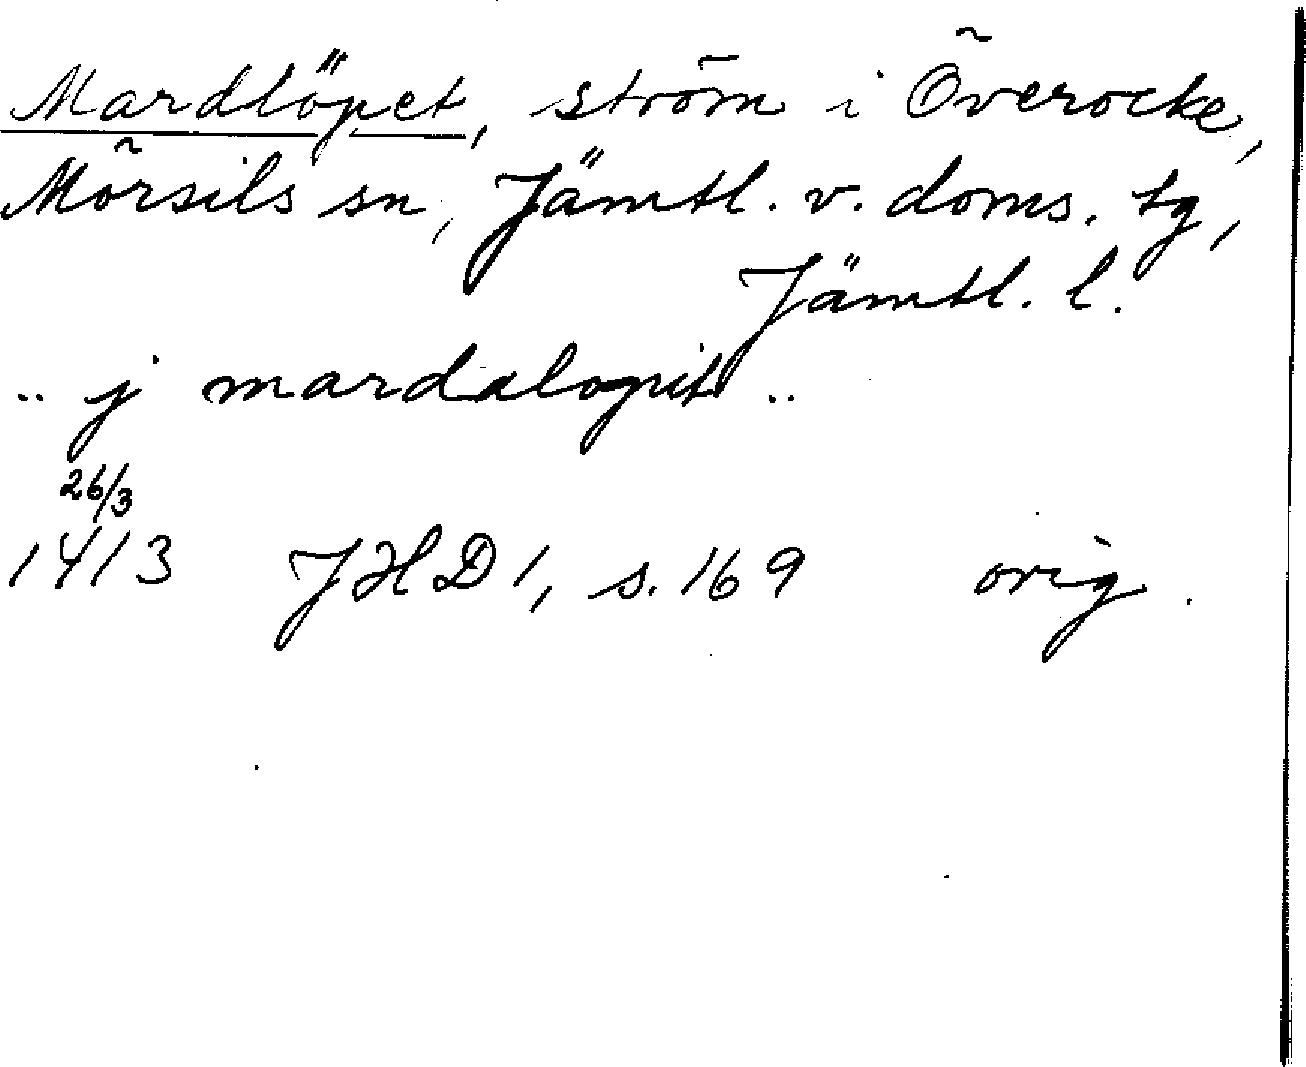 Mardlöpet, ström i Överocke,
Mörsils sn, Jämtl. v. doms. tg,
Jämtl. l.
.. j mardalopit ..
26/3
1413 JHD 1, s. 169 orig.